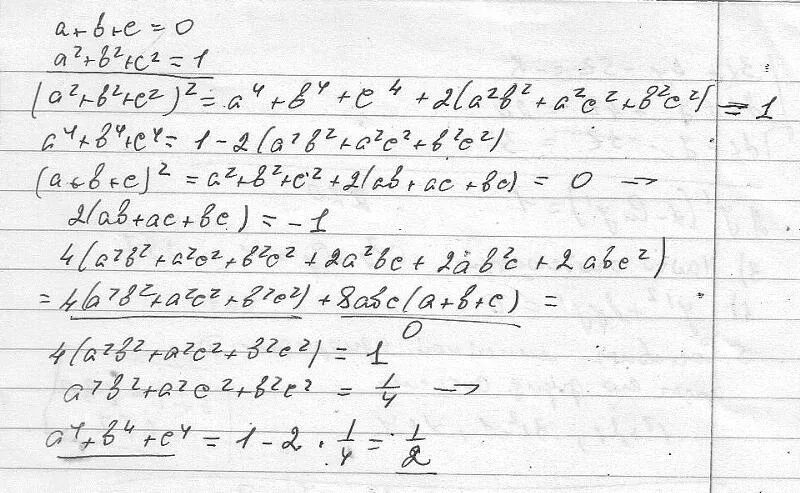 a+b+c=0
a²+b²+c²=1
(a²+b²+c²)²=a⁴+b⁴+c⁴+2(a²b²+a²c²+b²c²)=1
a⁴+b⁴+c⁴=1-2(a²b²+a²c²+b²c²)
(a+b+c)²=a²+b²+c²+2(ab+ac+bc)=0 →
2(ab+ac+bc)=-1
4(a²b²+a²c²+b²c²+2a²bc+2ab²c+2abc²)
=4(a²b²+a²c²+b²c²)+8abc(a+b+c)=
0
4(a²b²+a²c²+b²c²)=1
a²b²+a²c²+b²c²=1/4 →
a⁴+b⁴+c⁴=1-2·1/4=1/2